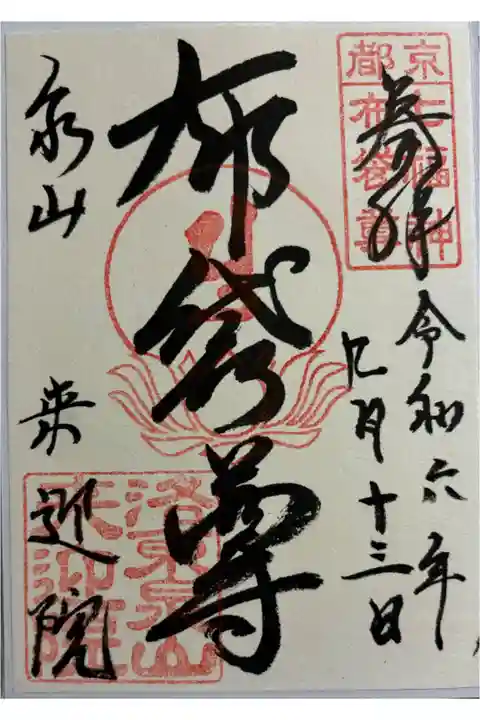 京都
七福神
布袋尊
奉拝
令和六年
四月十三日
布袋尊
泉山 来迎院
洛東泉山
来迎院